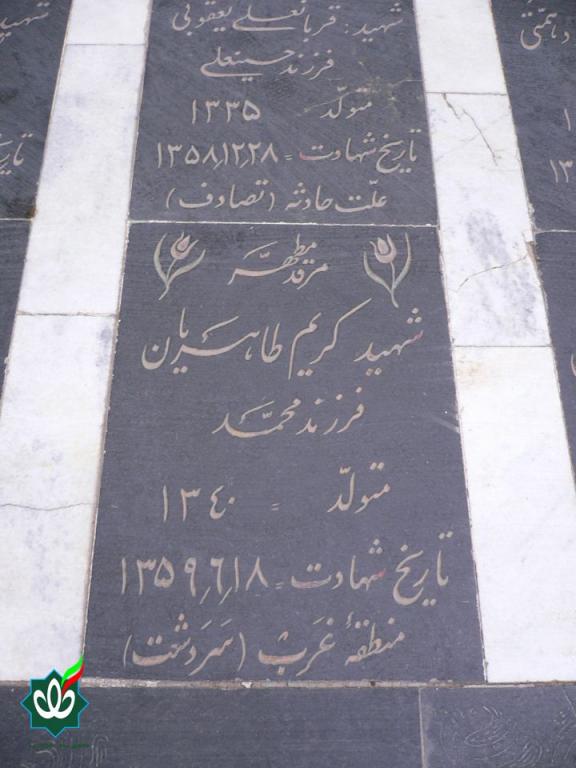 شهید: قربانعلی یعقوبی
فرزند حسینعلی
متولّد ۱۳۳۵
تاریخ شهادت = ۱۳۵۸٫۱۲٫۲۸
علّت حادثه (تصادف)
مرقد مطهّر
شهید کریم طاهریان
فرزند محمّد
متولّد = ۱۳٤۰
تاریخ شهادت = ۱۳۵۹٫٦٫۱۸
منطقهٔ غَرَب (سَردَشت)